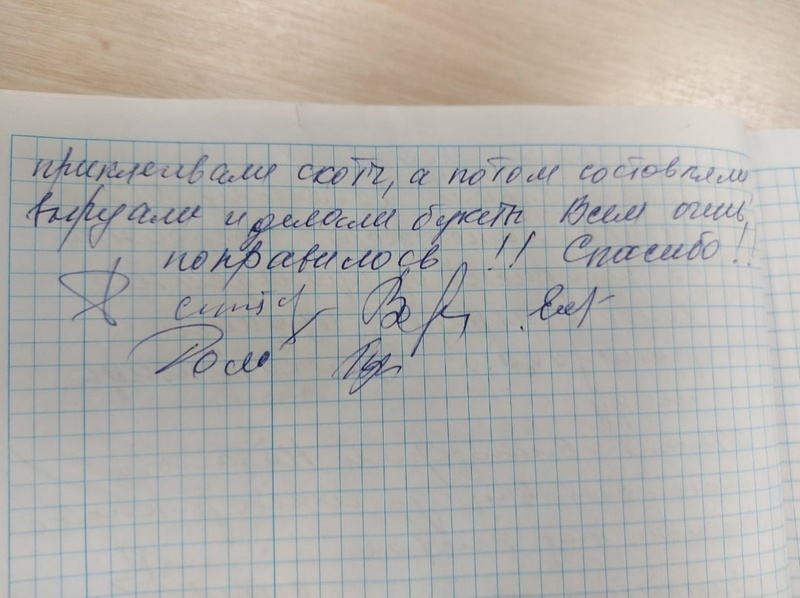 приклеивали скотч, а потом составляли
и делали букеты Всем очень
понравилось !! Спасибо !!